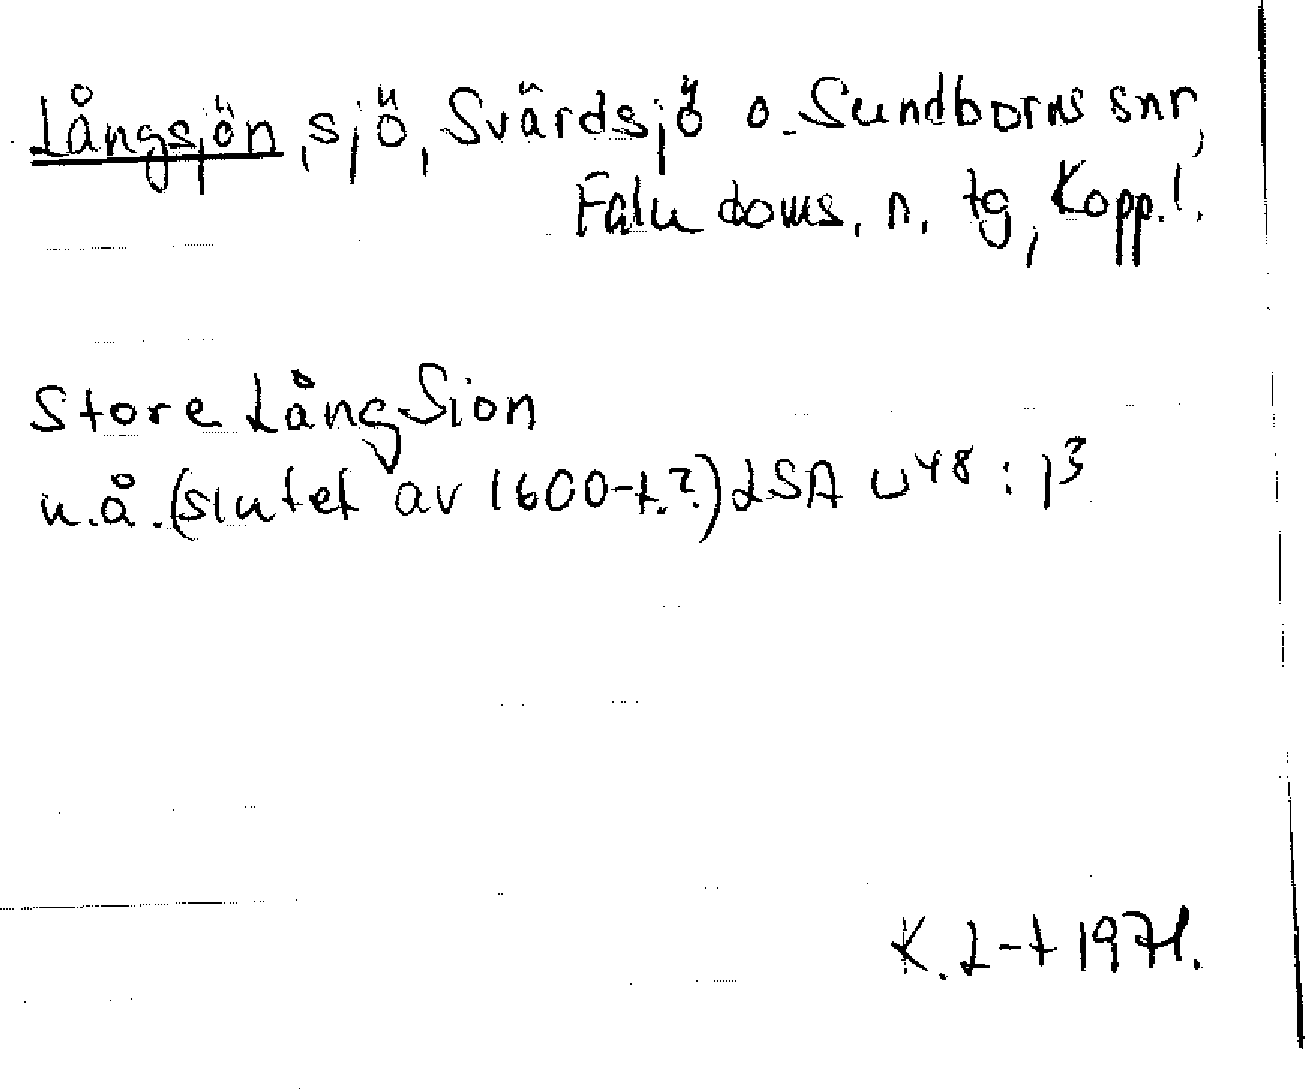 Långsjön, sjö, Svärdsjö o. Sundborns snr,
Falu doms. n. tg, Kopp. l.
Store LångSion
u.å. (slutet av 1600-t.?) LSA U48 : 13
K. L-t 1971.